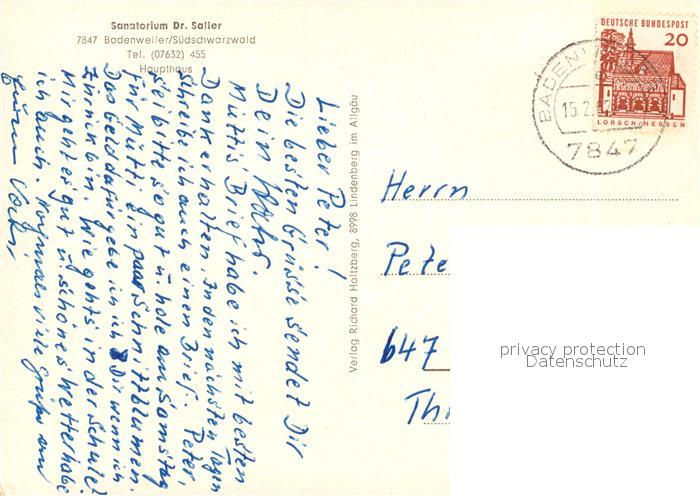 Sanatorium Dr. Saller
7847 Badenweiler/Südschwarzwald
Tel. (07632) 455
Haupthaus
Lieber Peter!
Die besten Grüsse sendet Dir
Dein
Muttis Brief habe ich mit besten
Dank erhalten. In den nächsten Tagen
schreibe ich auch einen Brief. Peter,
sei bitte so gut u. hole am Samstag
für Mutti ein paar Schnittblumen.
Das Geld dafür gebe ich Dir wenn ich
zurück bin. Wie gehts in der Schule?
Mir geht es gut u. schönes Wetter habe
ich auch. Nochmals viele Grüße an
Verlag Richard Holtzberg, 8998 Lindenberg im Allgäu
DEUTSCHE BUNDESPOST
20
LORSCH/HESSEN
15.2.
7847
Herrn
Pete
647
Th
privacy protection
Datenschutz